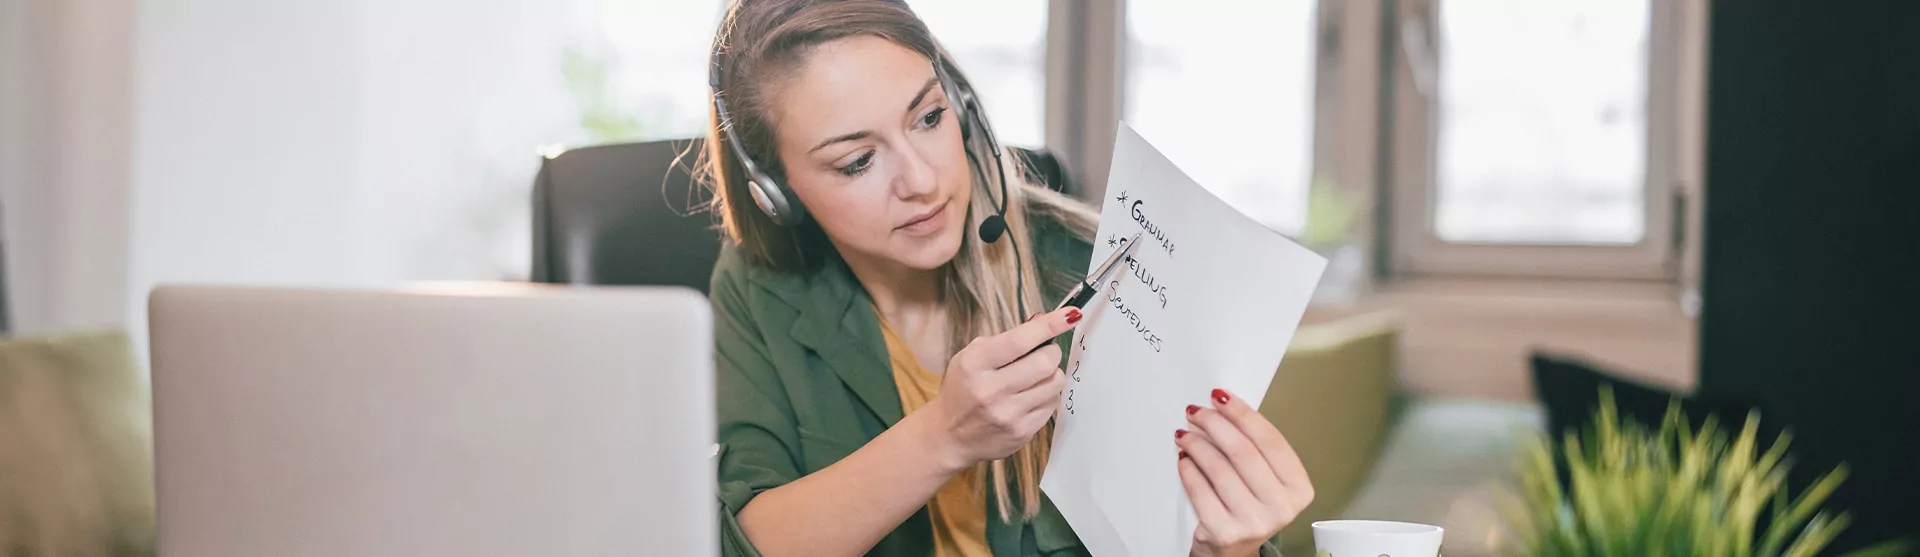 * GRAMMAR
* SPELLING
SENTENCES
1.
2.
3.